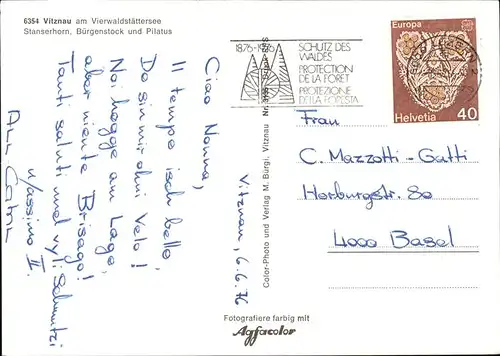 6354 Vitznau am Vierwaldstättersee
Stanserhorn, Bürgenstock und Pilatus
Vitznau, 6.6.76
Ciao Nonna,
Il tempo isch bello,
Do simir ohni Velo!
Noi hogge am Lago,
aber niente Brisago!
Tanti saluti und vyli Schmutzi
Massimo II.
Color-Photo und Verlag M. Bürgi, Vitznau Nr.
Fotografiere farbig mit
Agfacolor
1876-1976
SCHUTZ DES
WALDES
PROTECTION
DE LA FORET
PROTEZIONE
DELLA FORESTA
Europa
Helvetia 40
Frau
C. Mazzotti-Gatti
Horburgstr. 80
4000 Basel